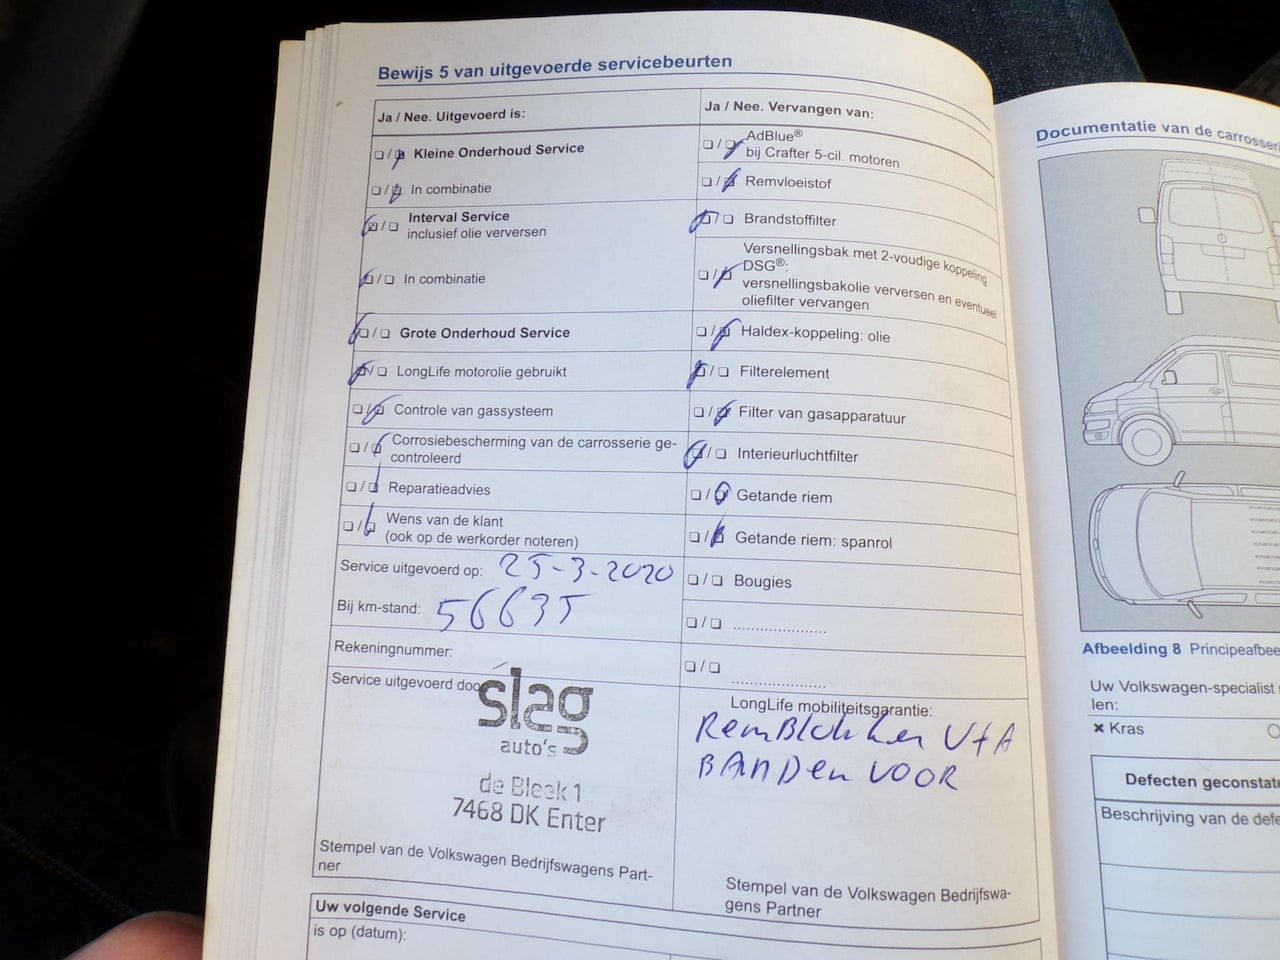 Bewijs 5 van uitgevoerde servicebeurten
Ja / Nee. Uitgevoerd is:
Kleine Onderhoud Service
In combinatie
Interval Service
inclusief olie verversen
In combinatie
Grote Onderhoud Service
LongLife motorolie gebruikt
Controle van gassysteem
Corrosiebescherming van de carrosserie ge-
controleerd
Reparatieadvies
Wens van de klant
(ook op de werkorder noteren)
Service uitgevoerd op: 25-3-2020
Bij km-stand: 56635
Rekeningnummer:
Service uitgevoerd doo
slag
auto's
de Bleek 1
7468 DK Enter
Stempel van de Volkswagen Bedrijfswagens Part-
ner
Ja / Nee. Vervangen van:
AdBlue®
bij Crafter 5-cil. motoren
Remvloeistof
Brandstoffilter
Versnellingsbak met 2-voudige koppeling
DSG®:
versnellingsbakolie verversen en eventueel
oliefilter vervangen
Haldex-koppeling: olie
Filterelement
Filter van gasapparatuur
Interieurluchtfilter
Getande riem
Getande riem: spanrol
Bougies
LongLife mobiliteitsgarantie:
RemBlokken V+A
BANDen VOOR
Stempel van de Volkswagen Bedrijfswa-
gens Partner
Uw volgende Service
is op (datum):
Documentatie van de carrosseri
Afbeelding 8 Principeafbee
Uw Volkswagen-specialist
len:
Kras
Defecten geconstate
Beschrijving van de defe